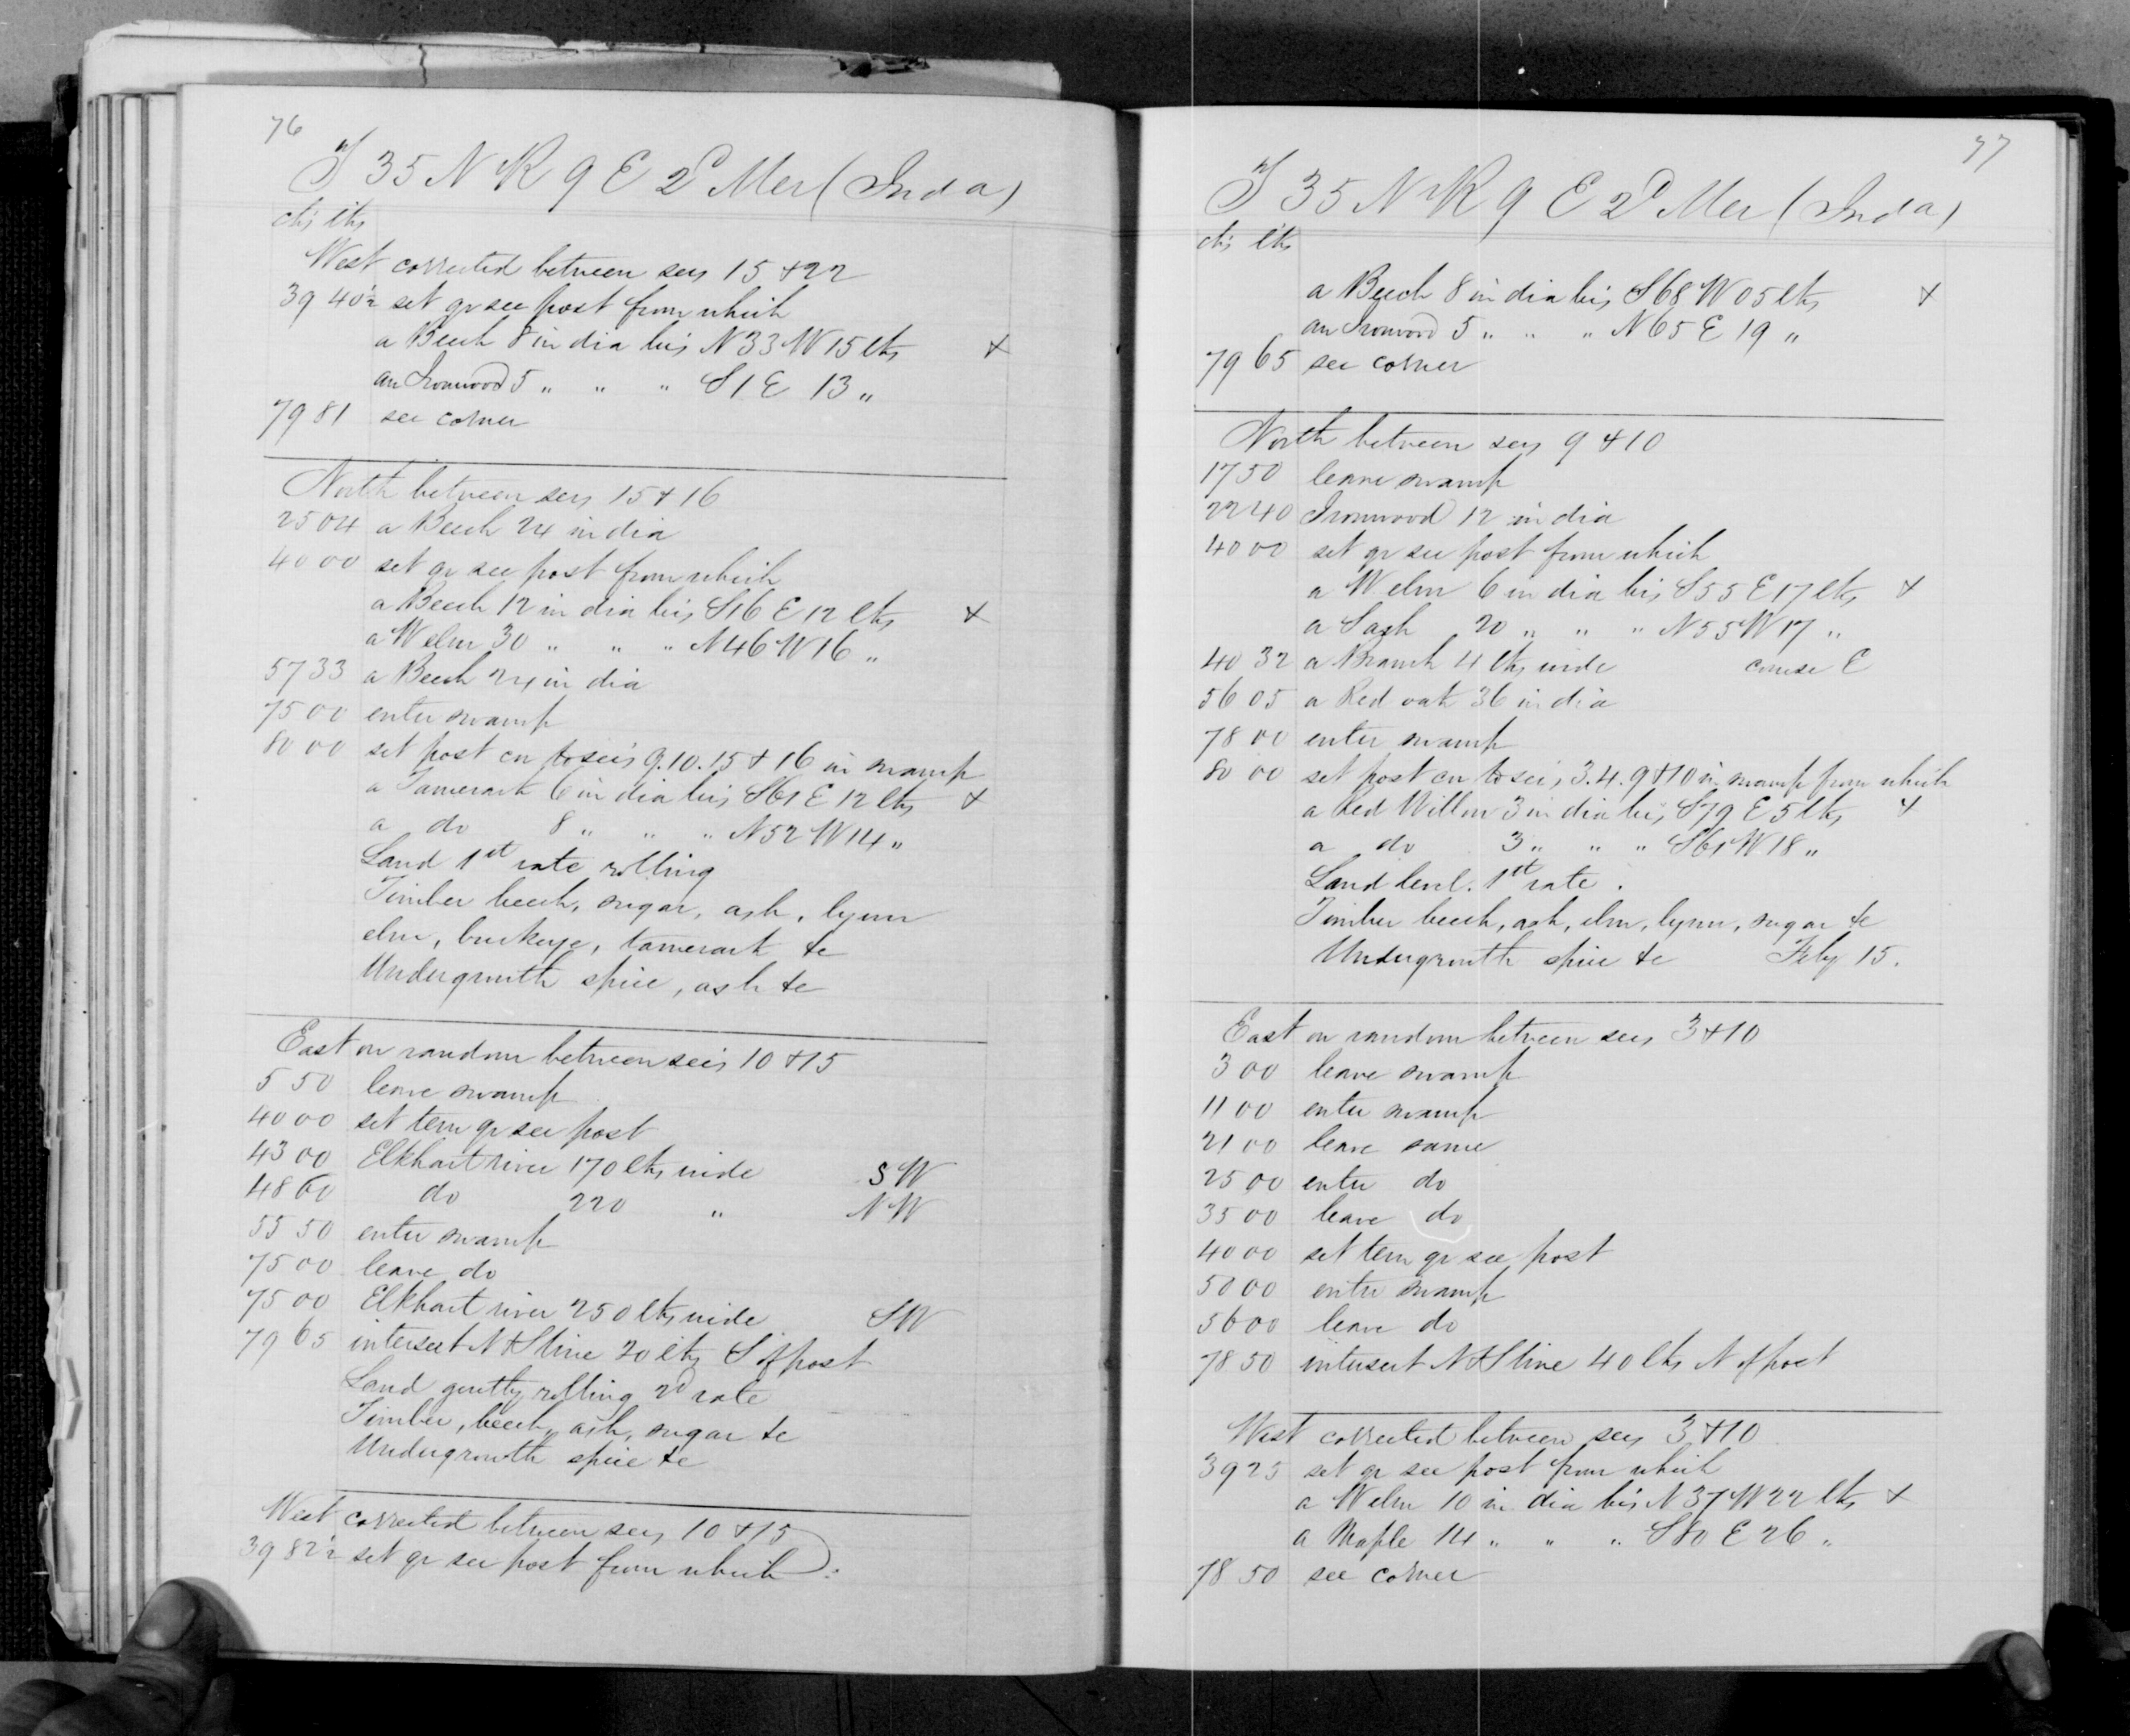 76
T 35 N R 9 E 2d Mer (Inda)
chs lks
West corrected between secs 15 & 22
39 40½ set qr sec post from which
a Beech 8 in dia brs N 33 W 15 lks +
an Ironwood 5 " " " S 1 E 13 "
79 81 sec corner
North between secs 15 & 16
25 04 a Beech 24 in dia
40 00 set qr sec post from which
a Beech 12 in dia brs S 16 E 12 lks +
a W elm 30 " " " N 46 W 16 "
57 33 a Beech 24 in dia
75 00 enter swamp
80 00 set post cor to sec's 9.10.15 & 16 in swamp
a Tamerack 6 in dia brs S 61 E 12 lks +
a do 8 " " " N 52 W 14 "
Land 1st rate rolling
Timber beech, sugar, ash, lynn
elm, buckeye, tamerack &c
Undergrowth spice, ash &c
East on random between sec's 10 & 15
5 50 leave swamp
40 00 set tem qr sec post
43 00 Elkhart river 170 lks wide SW
48 60 do 220 " NW
55 50 enter swamp
75 00 leave do
75 00 Elkhart river 250 lks wide SW
79 65 intersect N & S line 20 lks S of post
Land gently rolling 2d rate
Timber, beech, ash, sugar &c
Undergrowth spice &c
West corrected between secs 10 & 15
39 82½ set qr sec post from which
77
T 35 N R 9 E 2d Mer (Inda)
chs lks
a Beech 8 in dia brs S 68 W 05 lks +
an Ironwood 5 " " " N 65 E 19 "
79 65 sec corner
North between secs 9 & 10
17 50 leave swamp
22 40 Ironwood 12 in dia
40 00 set qr sec post from which
a W elm 6 in dia brs S 55 E 17 lks +
a S ash 20 " " " N 55 W 17 "
40 32 a Branch 4 lks wide course E
56 05 a Red oak 36 in dia
78 00 enter swamp
80 00 set post cor to sec's 3.4.9 & 10 in swamp from which
a Red Willow 3 in dia brs S 79 E 5 lks +
a do 3 " " " S 61 W 18 "
Land level. 1st rate.
Timber beech, ash, elm, lynn, sugar &c
Undergrowth spice &c Feby 15.
East on random between secs 3 & 10
3 00 leave swamp
11 00 enter swamp
21 00 leave same
25 00 enter do
35 00 leave do
40 00 set tem qr sec post
50 00 enter swamp
56 00 leave do
78 50 intersect N & S line 40 lks N of post
West corrected between secs 3 & 10
39 25 set qr sec post from which
a W elm 10 in dia brs N 37 W 22 lks +
a Maple 14 " " " S 80 E 26 "
78 50 sec corner